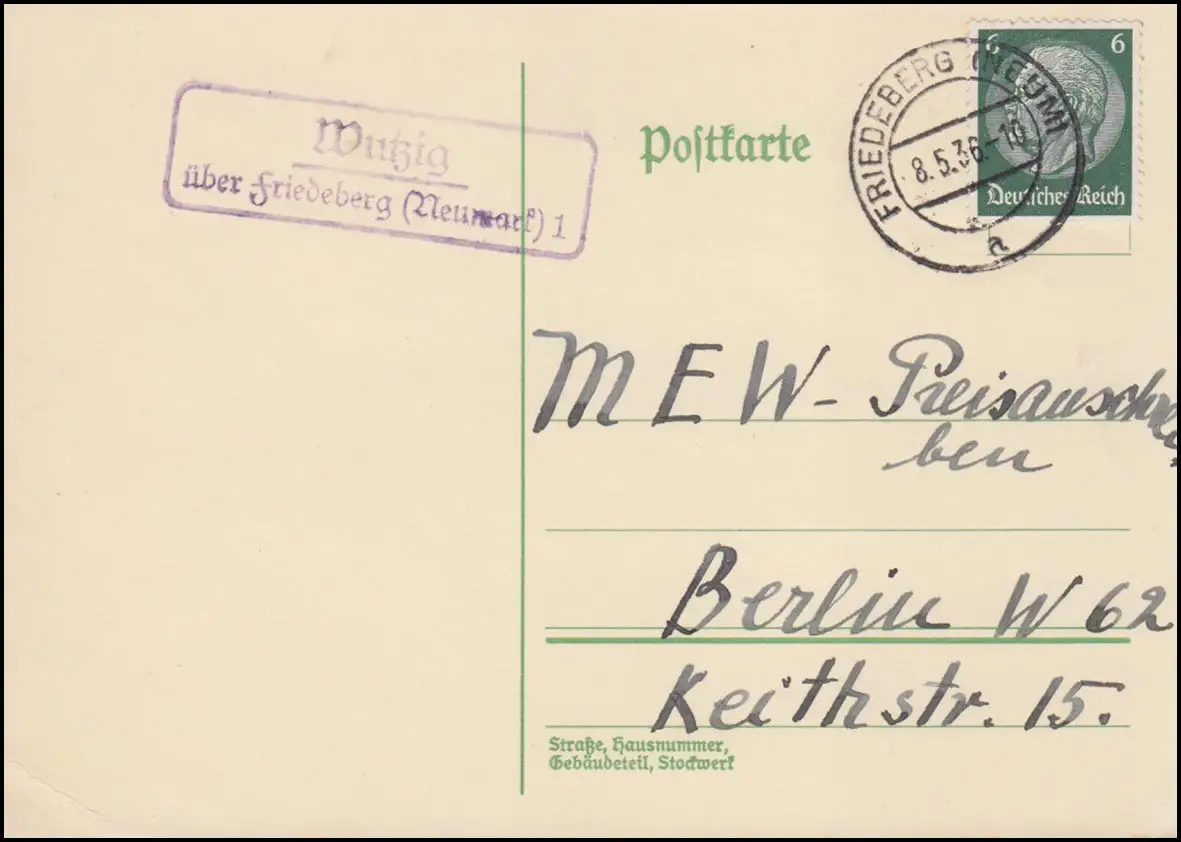 Wutzig
über Friedeberg (Neumark) 1
Postkarte
FRIEDEBERG (NEUM)
8.5.36.-10
a
6 6
Deutsches Reich
MEW- Preisausschrei
ben
Berlin W 62
Keithstr. 15.
Straße, Hausnummer,
Gebäudeteil, Stockwerk